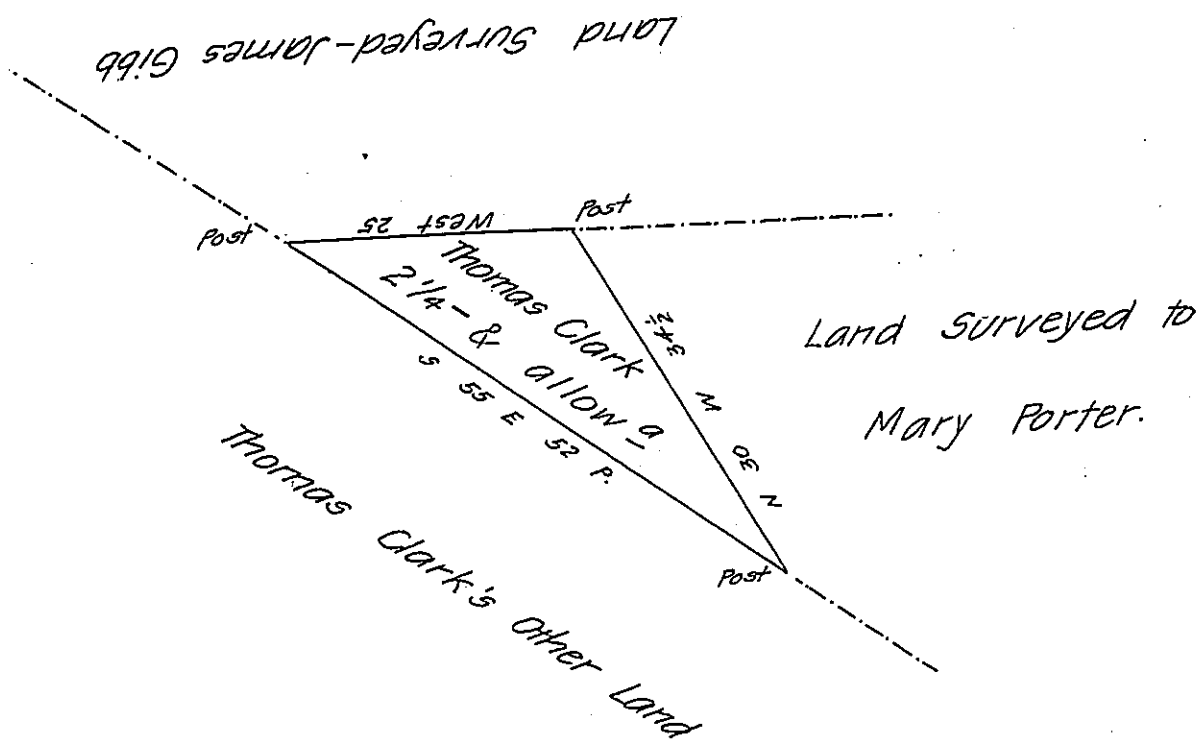 Land Surveyed-James Gibb
Post
West 25
Post
Thomas Clark
2 1/4 - & allow a
N 30 W 34 1/2
S 55 E 52 P.
Post
Land Surveyed to
Mary Porter.
Thomas Clark's Other Land